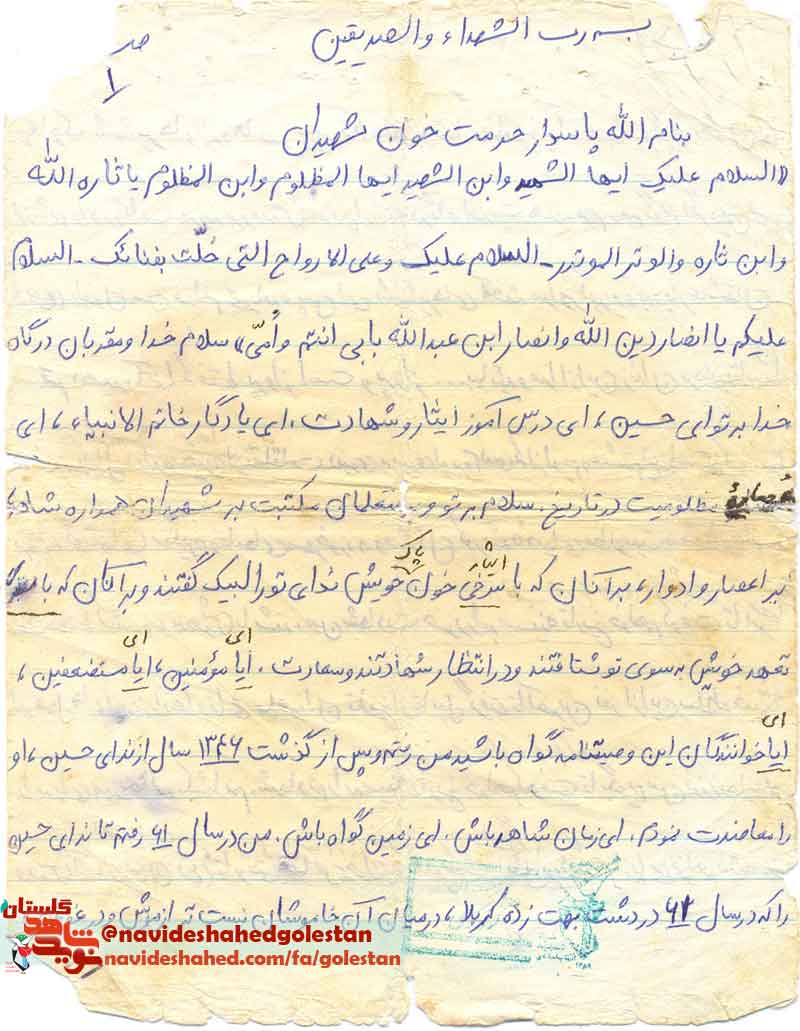 بسم رب الشهداء والصدیقین
صـ
۱
بنام الله پاسدار حرمت خون شهیدان
«السلام علیک ایها الشهید وابن الشهید ایها المظلوم وابن المظلوم یا ثاره الله
وابن ثاره والوتر الموتور - السلام علیک وعلی الارواح التی حلّت بفنائک - السلام
علیکم یا انصار دین الله وانصار ابن عبدالله بابی انتم واُمّی» سلام خدا و مقربان درگاه
خدا بر تو ای حسین، ای درس آموز ایثار و شهادت. ای یادگار خاتم الانبیاء، ای
مظلومیت در تاریخ. سلام بر تو و متعلمان مکتبت بر شهیدان همواره شاهد
بر اعصار و ادوار، بر آنان که با سرخی خون خویش ندای تو را لبیک گفتند و بر آنان که با
ایثار پاک
تعهد خویش به سوی تو شتافتند و در انتظار شهادتند و سعادت. ایا مؤمنین، ایا مستضعفین،
ای ای
ایا خوانندگان این وصیتنامه گواه باشید من رفتم و پس از گذشت ۱۳۴۶ سال از ندای حسین، او
ای
را معاضدت نمودم. ای زمان شاهد باش. ای زمین گواه باش. من در سال ۶۱ رفتم تا ندای حسین
را که در سال ۶۱ در دشت بهت زده کربلا، در میان آن خاموشان پست تر از وحش و در
گلستان
نوید شاهد
@navideshahedgolestan
navideshahed.com/fa/golestan